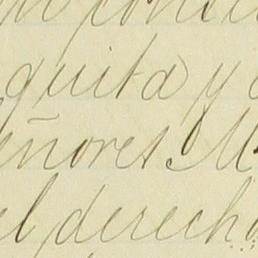 quita y
eñores M
el derecho